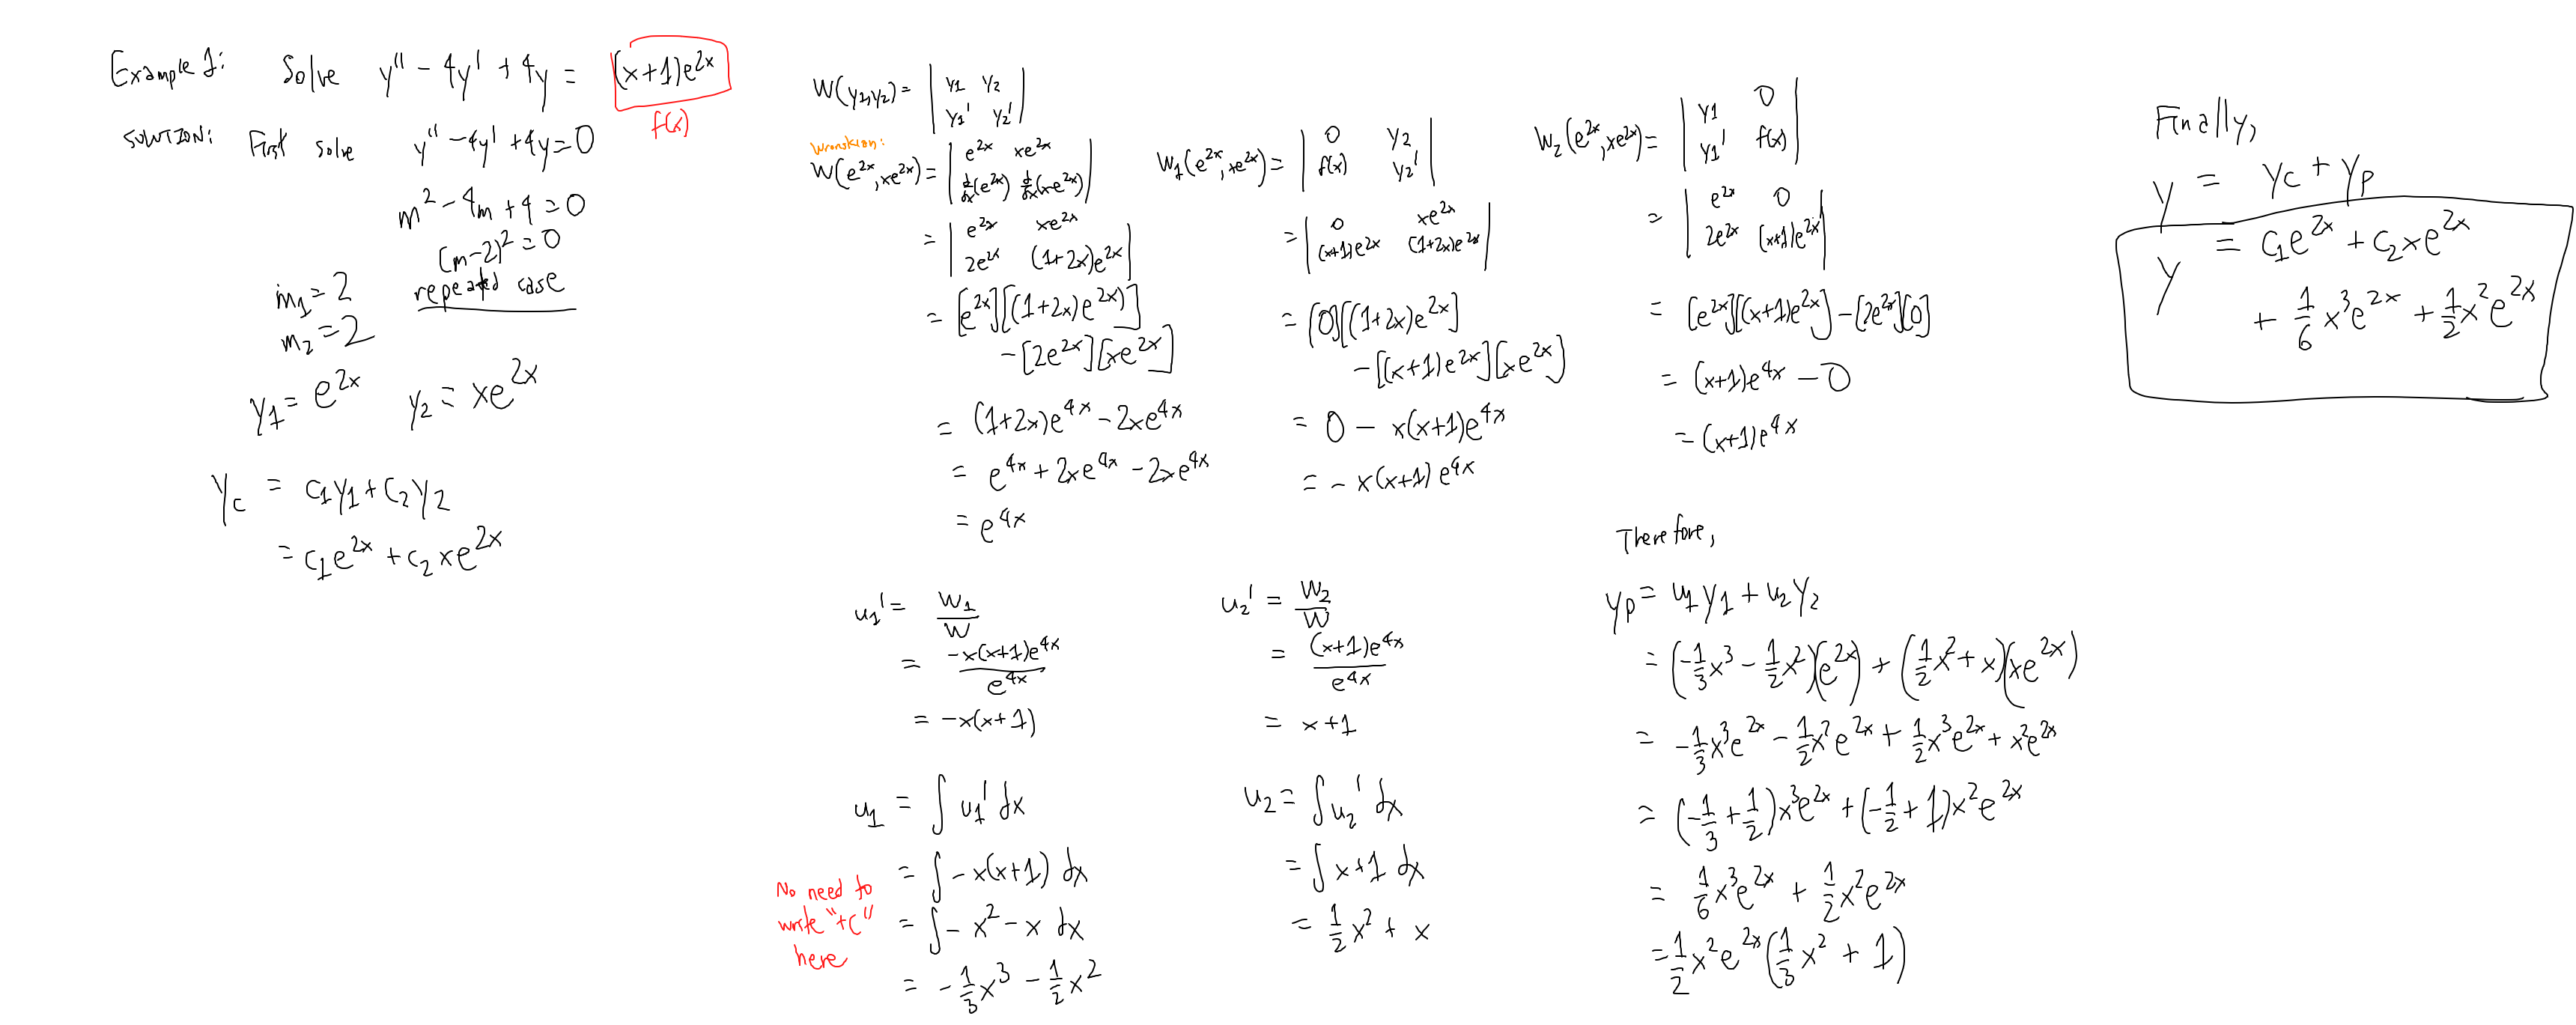 Example 1: Solve y'' - 4y' + 4y = (x+1)e^{2x}
f(x)
SOLUTION: First solve y'' - 4y' + 4y = 0
m^2 - 4m + 4 = 0
(m-2)^2 = 0
m_1 = 2 repeated case
m_2 = 2
y_1 = e^{2x} y_2 = xe^{2x}
y_c = c_1y_1 + c_2y_2
= c_1e^{2x} + c_2xe^{2x}
W(y_1,y_2) = | y_1 y_2 |
| y_1' y_2' |
Wronskian:
W(e^{2x}, xe^{2x}) = | e^{2x} xe^{2x} |
| d/dx(e^{2x}) d/dx(xe^{2x}) |
= | e^{2x} xe^{2x} |
| 2e^{2x} (1+2x)e^{2x} |
= [e^{2x}][(1+2x)e^{2x})]
- [2e^{2x}][xe^{2x}]
= (1+2x)e^{4x} - 2xe^{4x}
= e^{4x} + 2xe^{4x} - 2xe^{4x}
= e^{4x}
W_1(e^{2x}, xe^{2x}) = | 0 y_2 |
| f(x) y_2' |
= | 0 xe^{2x} |
| (x+1)e^{2x} (1+2x)e^{2x} |
= [0][(1+2x)e^{2x}]
- [(x+1)e^{2x}][xe^{2x}]
= 0 - x(x+1)e^{4x}
= -x(x+1)e^{4x}
W_2(e^{2x}, xe^{2x}) = | y_1 0 |
| y_1' f(x) |
= | e^{2x} 0 |
| 2e^{2x} (x+1)e^{2x} |
= [e^{2x}][(x+1)e^{2x}] - [2e^{2x}][0]
= (x+1)e^{4x} - 0
= (x+1)e^{4x}
u_1' = W_1/W
= -x(x+1)e^{4x}/e^{4x}
= -x(x+1)
u_1 = ∫ u_1' dx
= ∫ -x(x+1) dx
= ∫ -x^2 - x dx
= -1/3 x^3 - 1/2 x^2
No need to
write "+C"
here
u_2' = W_2/W
= (x+1)e^{4x}/e^{4x}
= x+1
u_2 = ∫ u_2' dx
= ∫ x+1 dx
= 1/2 x^2 + x
Therefore,
y_p = u_1y_1 + u_2y_2
= (-1/3 x^3 - 1/2 x^2)(e^{2x}) + (1/2 x^2 + x)(xe^{2x})
= -1/3 x^3e^{2x} - 1/2 x^2e^{2x} + 1/2 x^3e^{2x} + x^2e^{2x}
= (-1/3 + 1/2)x^3e^{2x} + (-1/2 + 1)x^2e^{2x}
= 1/6 x^3e^{2x} + 1/2 x^2e^{2x}
= 1/2 x^2e^{2x}(1/3 x^2 + 1)
Finally,
y = y_c + y_p
y = c_1e^{2x} + c_2xe^{2x}
+ 1/6 x^3e^{2x} + 1/2 x^2e^{2x}